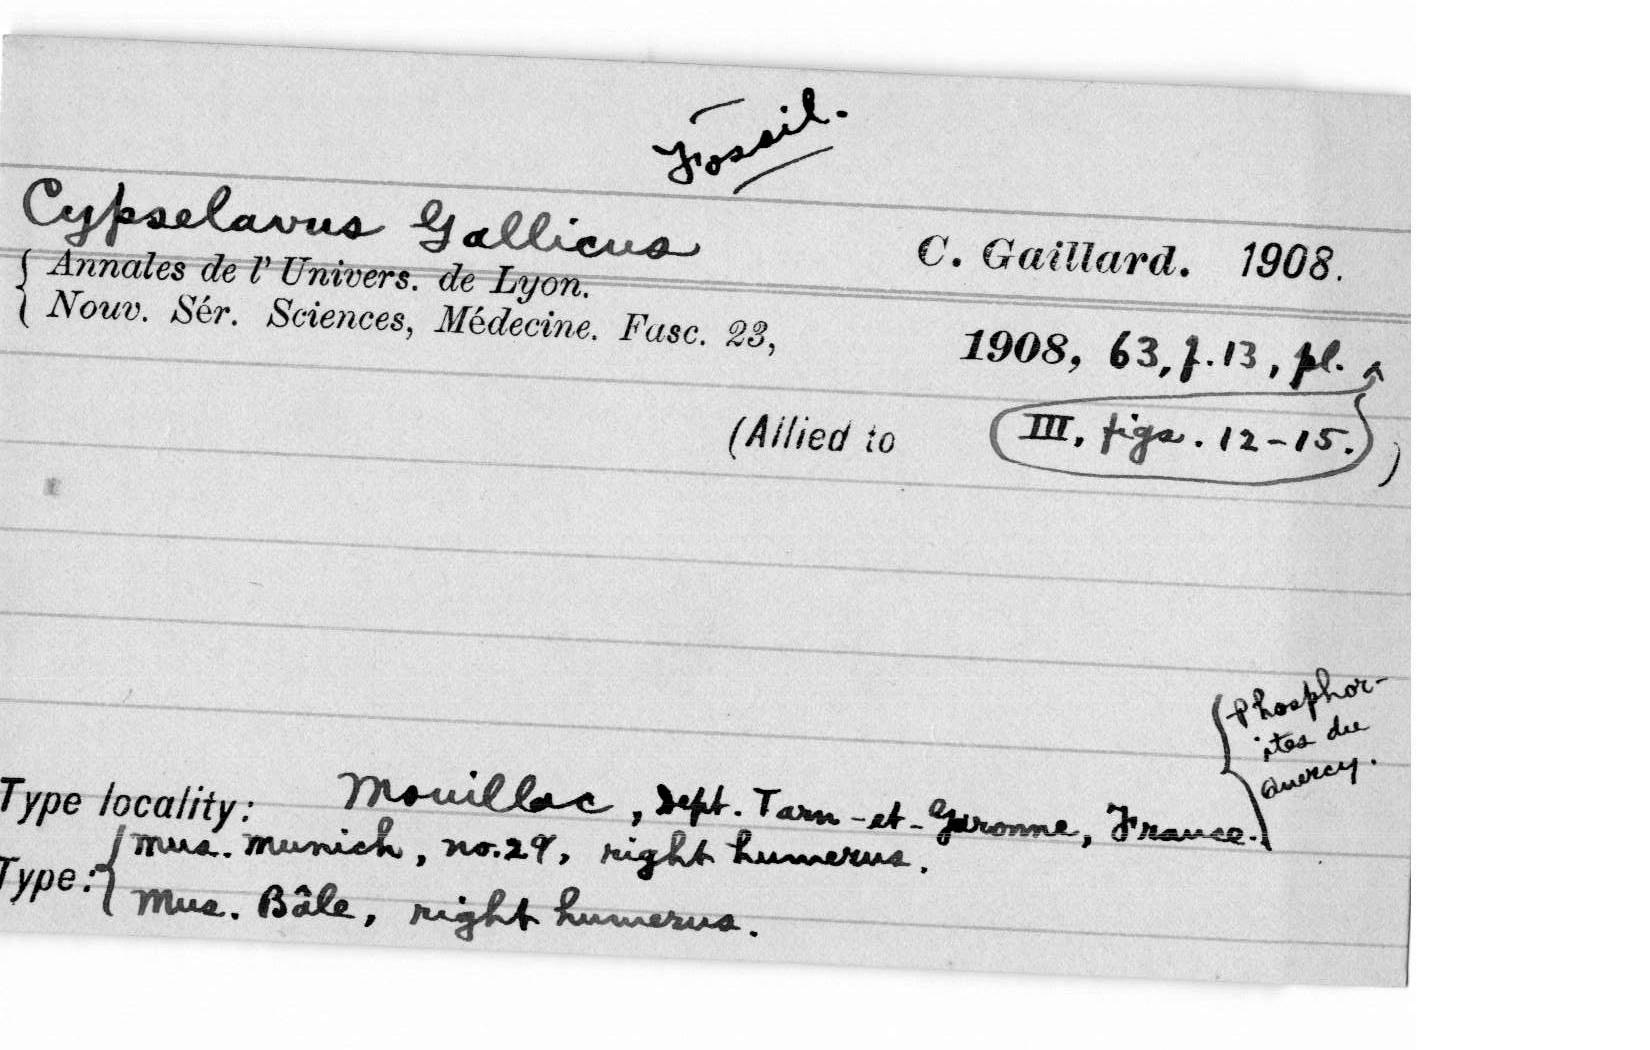 Fossil.
Cypselavus Gallicus C. Gaillard. 1908.
{ Annales de l' Univers. de Lyon.
{ Nouv. Sér. Sciences, Médecine. Fasc. 23, 1908, 63, f. 13, pl.
(Allied to III, figs. 12-15.)
{ Phosphor-
ites du
Quercy.
Type locality: Mouillac, Dept. Tarn-et-Garonne, France.
Type: { Mus. Munich, no. 29, right humerus.
Mus. Bâle, right humerus.